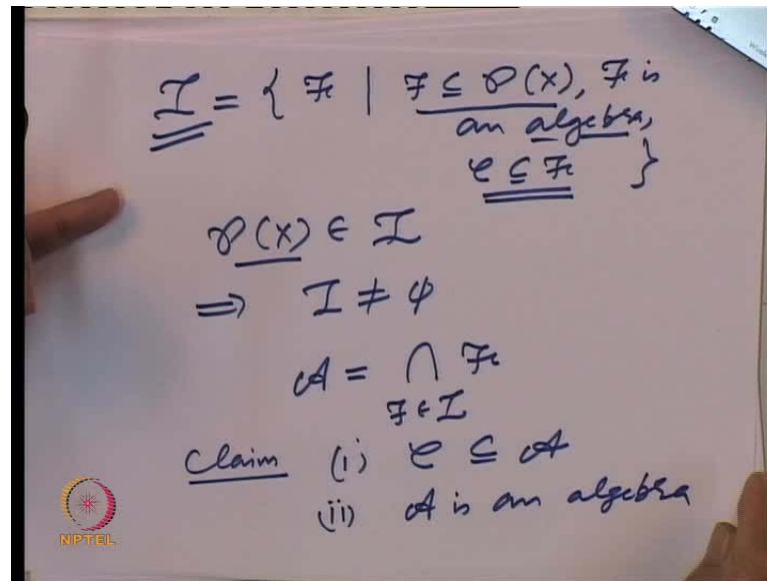 I = { F | F ⊆ P(X), F is
an algebra,
C ⊆ F }
P(X) ∈ I
⇒ I ≠ φ
A = ∩ F
F ∈ I
Claim (i) C ⊆ A
(ii) A is an algebra
NPTEL